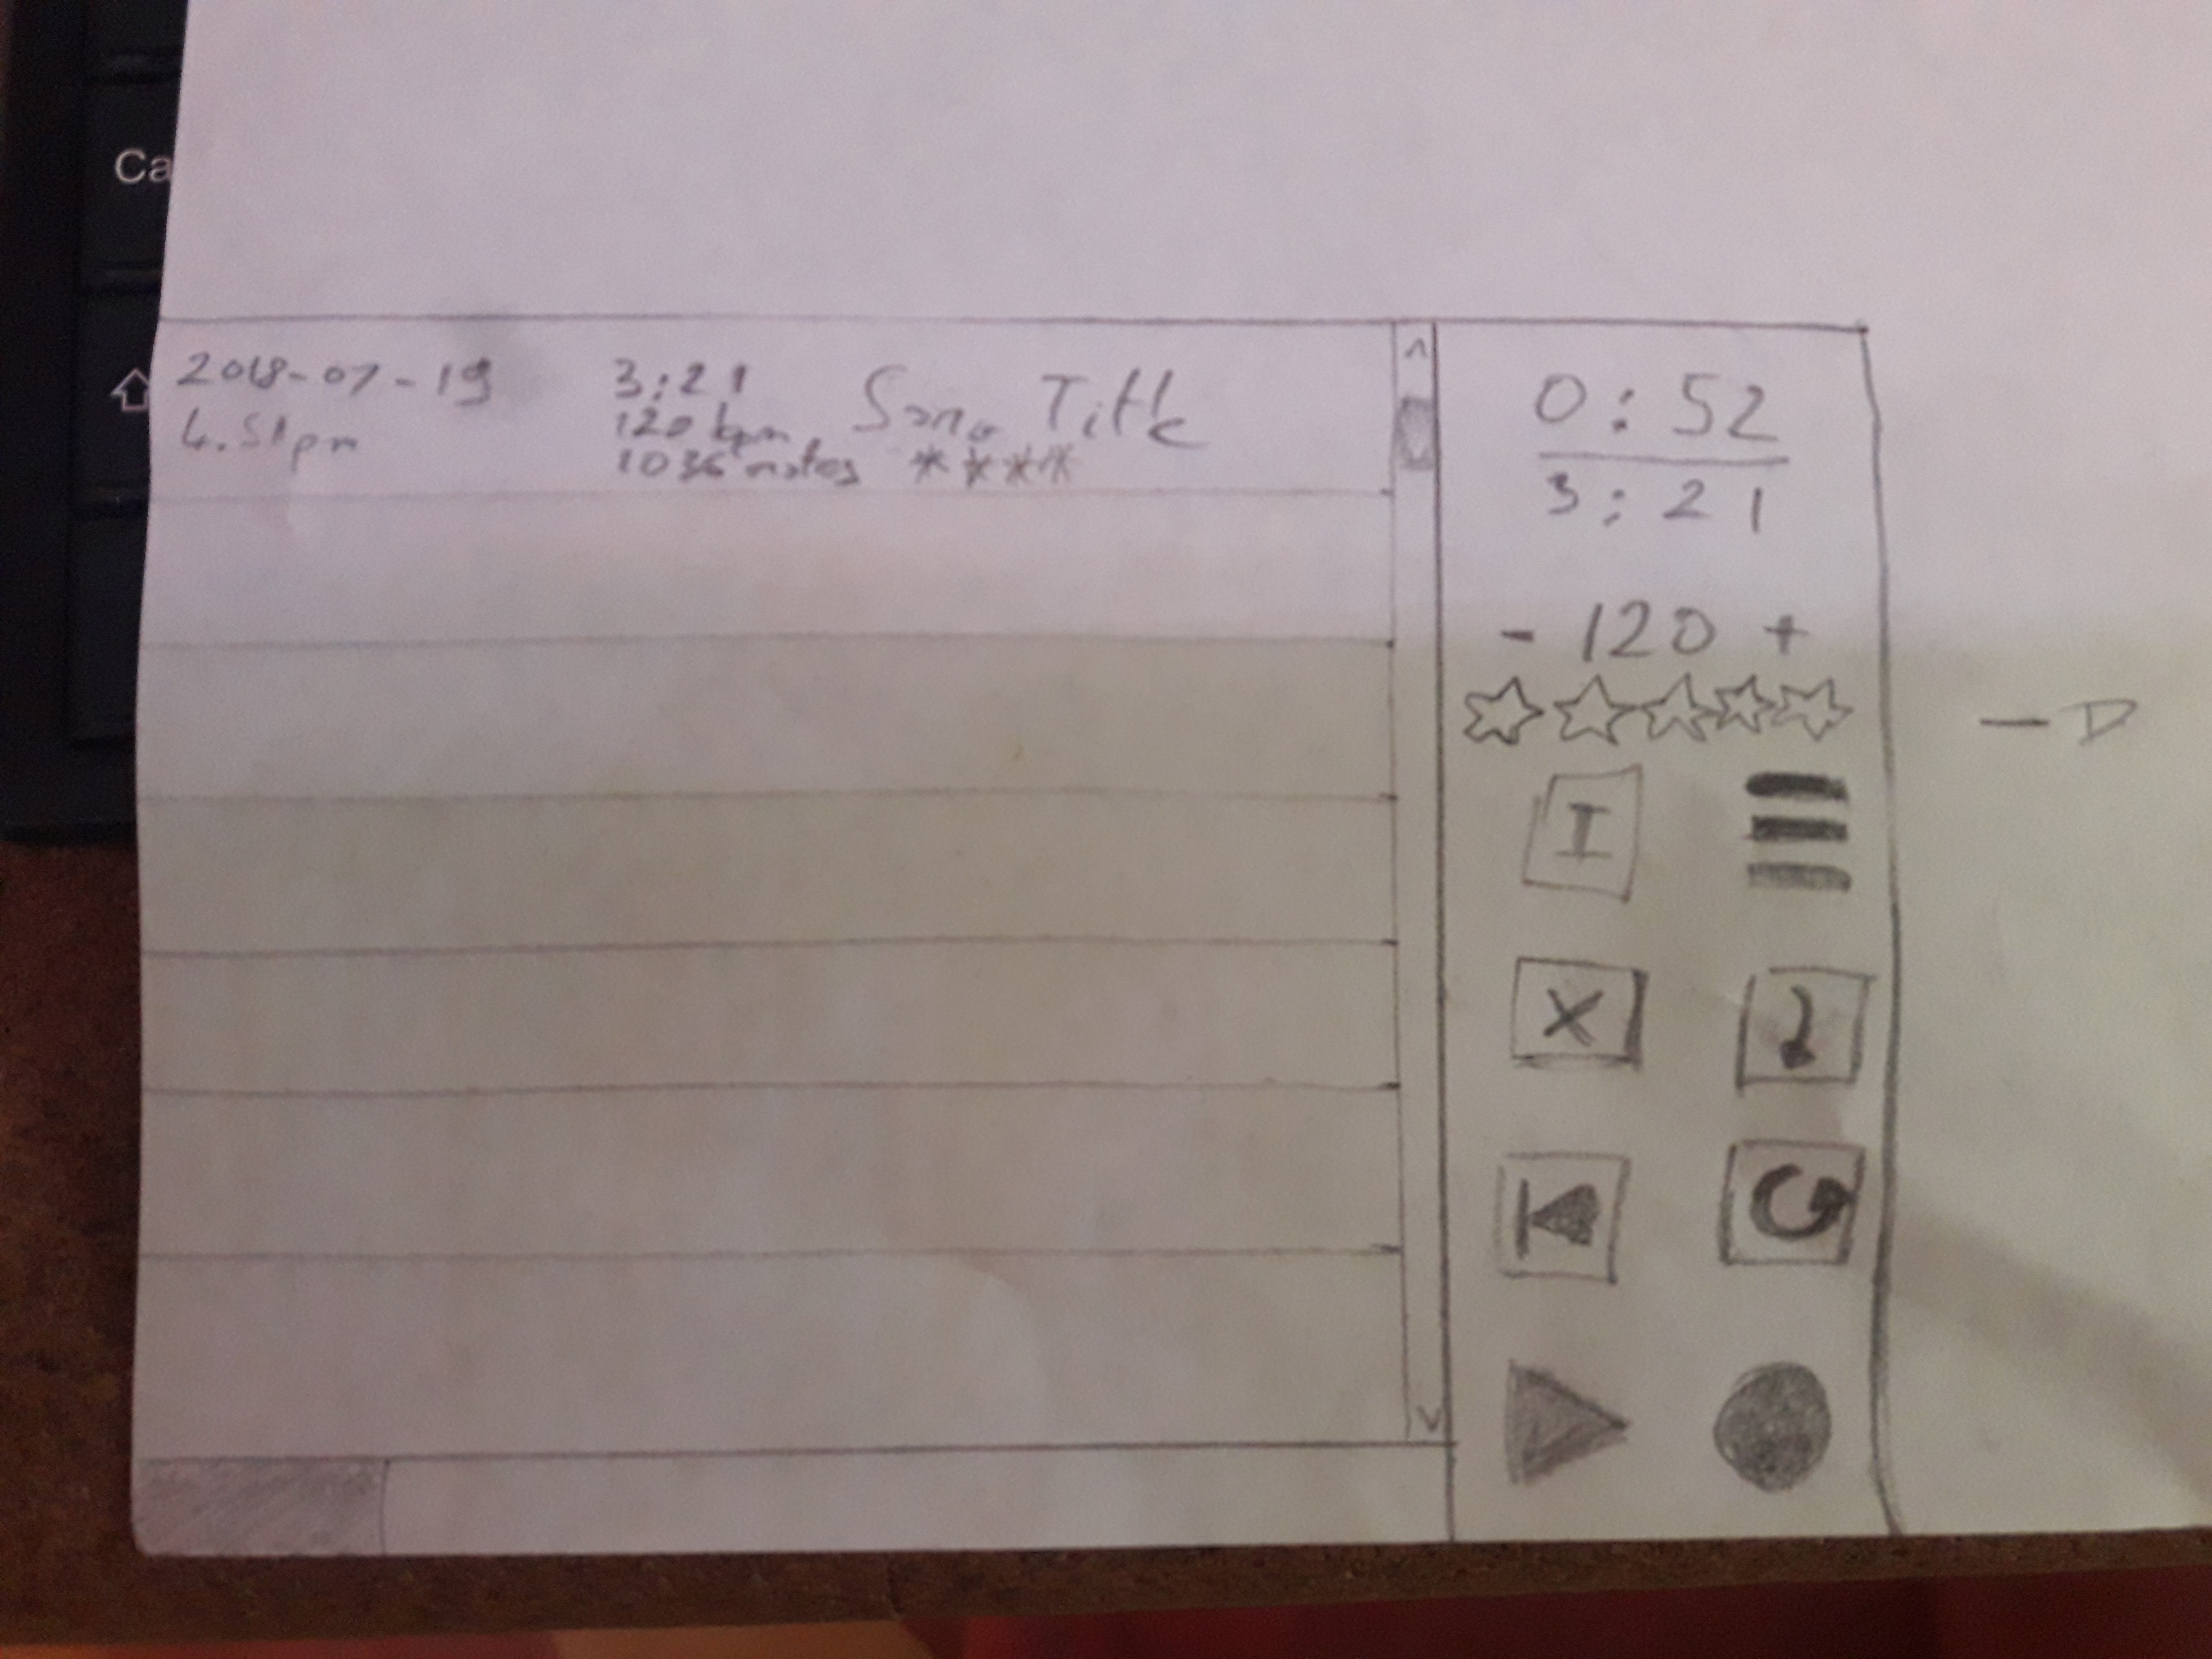 Ca
2018-07-19
4.51pm
3:21
120 bpm
1036 notes
Song Title
****
^
0:52
3:21
- 120 +
I
X
v